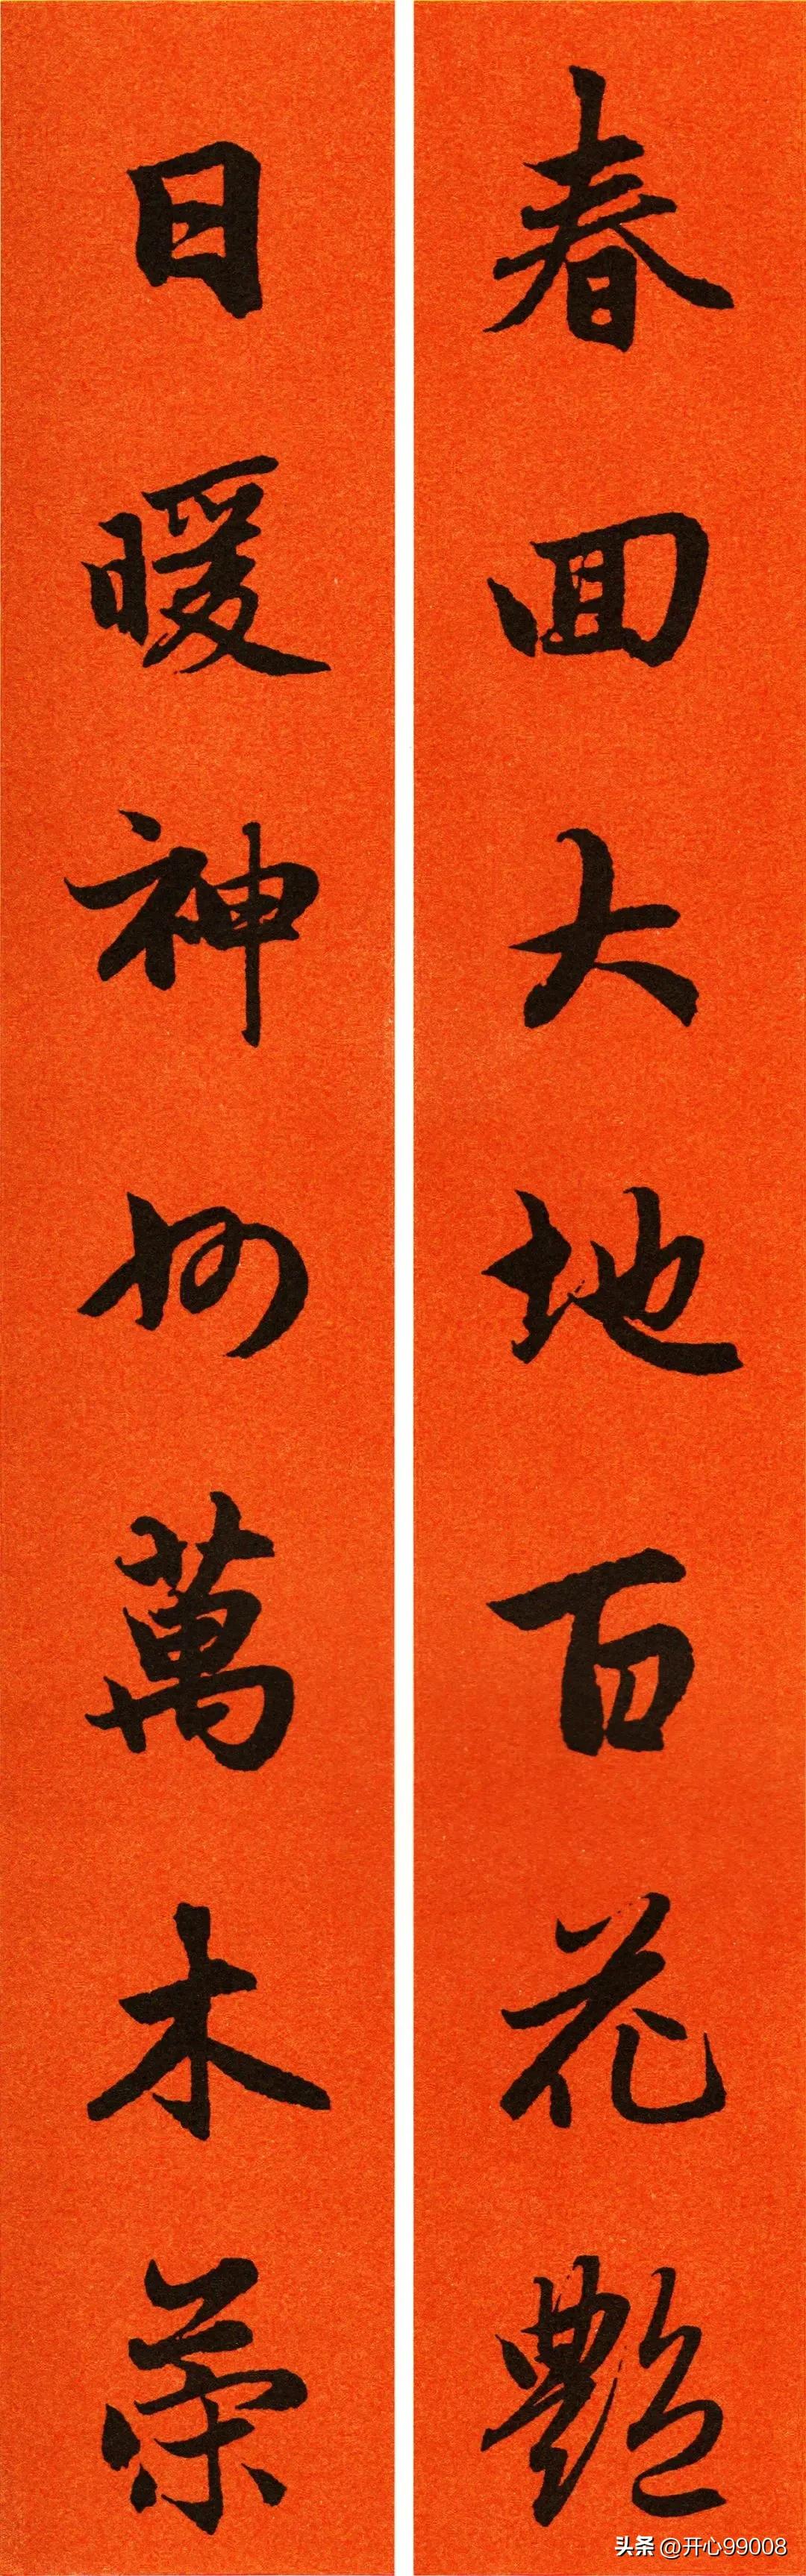 春回大地百花艷
日暖神州萬木荣
头条 @开心99008